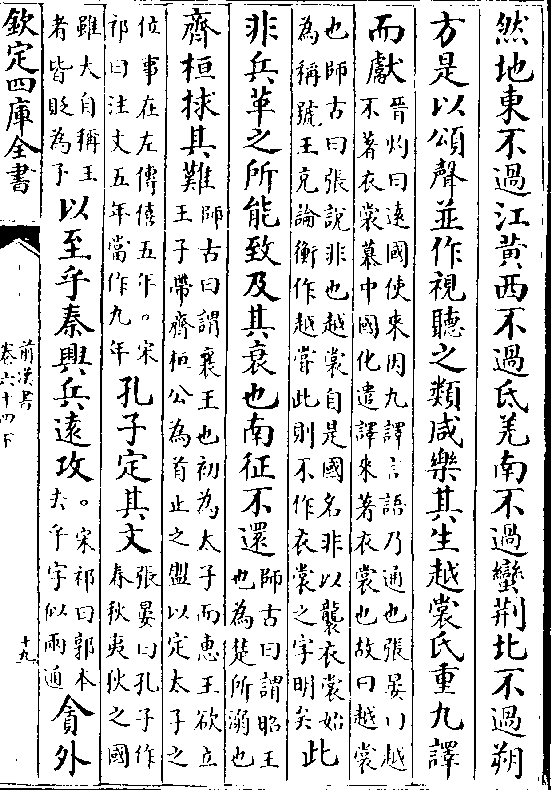 然地東不過江黃西不過氐羌南不過蠻荆北不過朔
方是以頌聲並作視聽之類咸樂其生越裳氏重九譯
而獻晉灼曰遠國使來因九譯言語乃通也張晏曰越
不著衣裳慕中國化遣譯來著衣裳也故曰越裳
也師古曰張說非也越裳自是國名非以襲衣裳始
為稱號王充論衡作越嘗此則不作衣裳之字明矣此
非兵革之所能致及其衰也南征不還師古曰謂昭王
也為楚所溺也
齊桓捄其難師古曰謂襄王也初為太子而惠王欲立
王子帶齊桓公為首止之盟以定太子之
位事在左傳僖五年。宋
祁曰注文五年當作九年孔子定其文張晏曰孔子作
春秋夷狄之國
雖大自稱王
者皆貶為子以至乎秦興兵遠攻。宋祁曰郭本
去乎字似兩通貪外
欽定四庫全書
前漢書
卷六十四下
十九